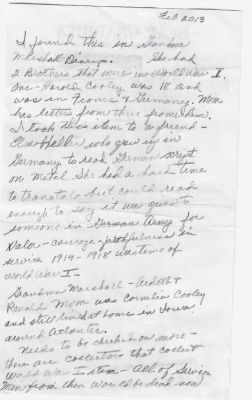 Feb 2013
I found this in Grandma
Marshal Diary. She had
2 Brothers that were in World War I.
One - Harold Cooley was 18 and
was in France & Germany. Mom
has letters from there from him.
I took this item to a friend -
Heller who grew up in
Germany to read German script
on metal She had a hard time
to translate but could read
enough to say it was given to
someone in German Army for
Valor - courage - faithfulness in
service 1914 - 1918 wartime of
World War I -
Grandma Marshall - Ardath &
Ronald Mom was Cornelia Cooley
and still lived at home in Iowa
around Atlantic.
Needs to be checked on more -
there are collectors that collect
World War I item - All of Service
Men from then would be dead now